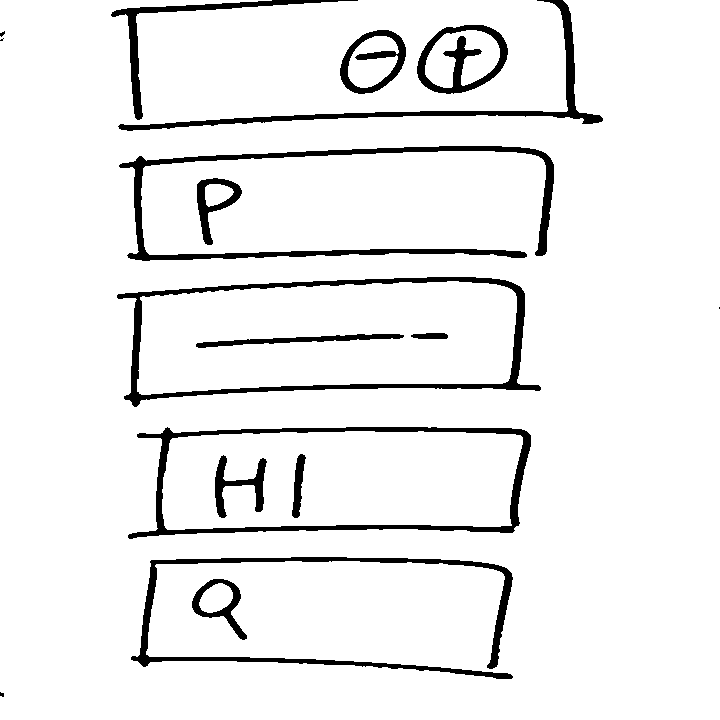 ⊖ ⊕
P
HI
Q